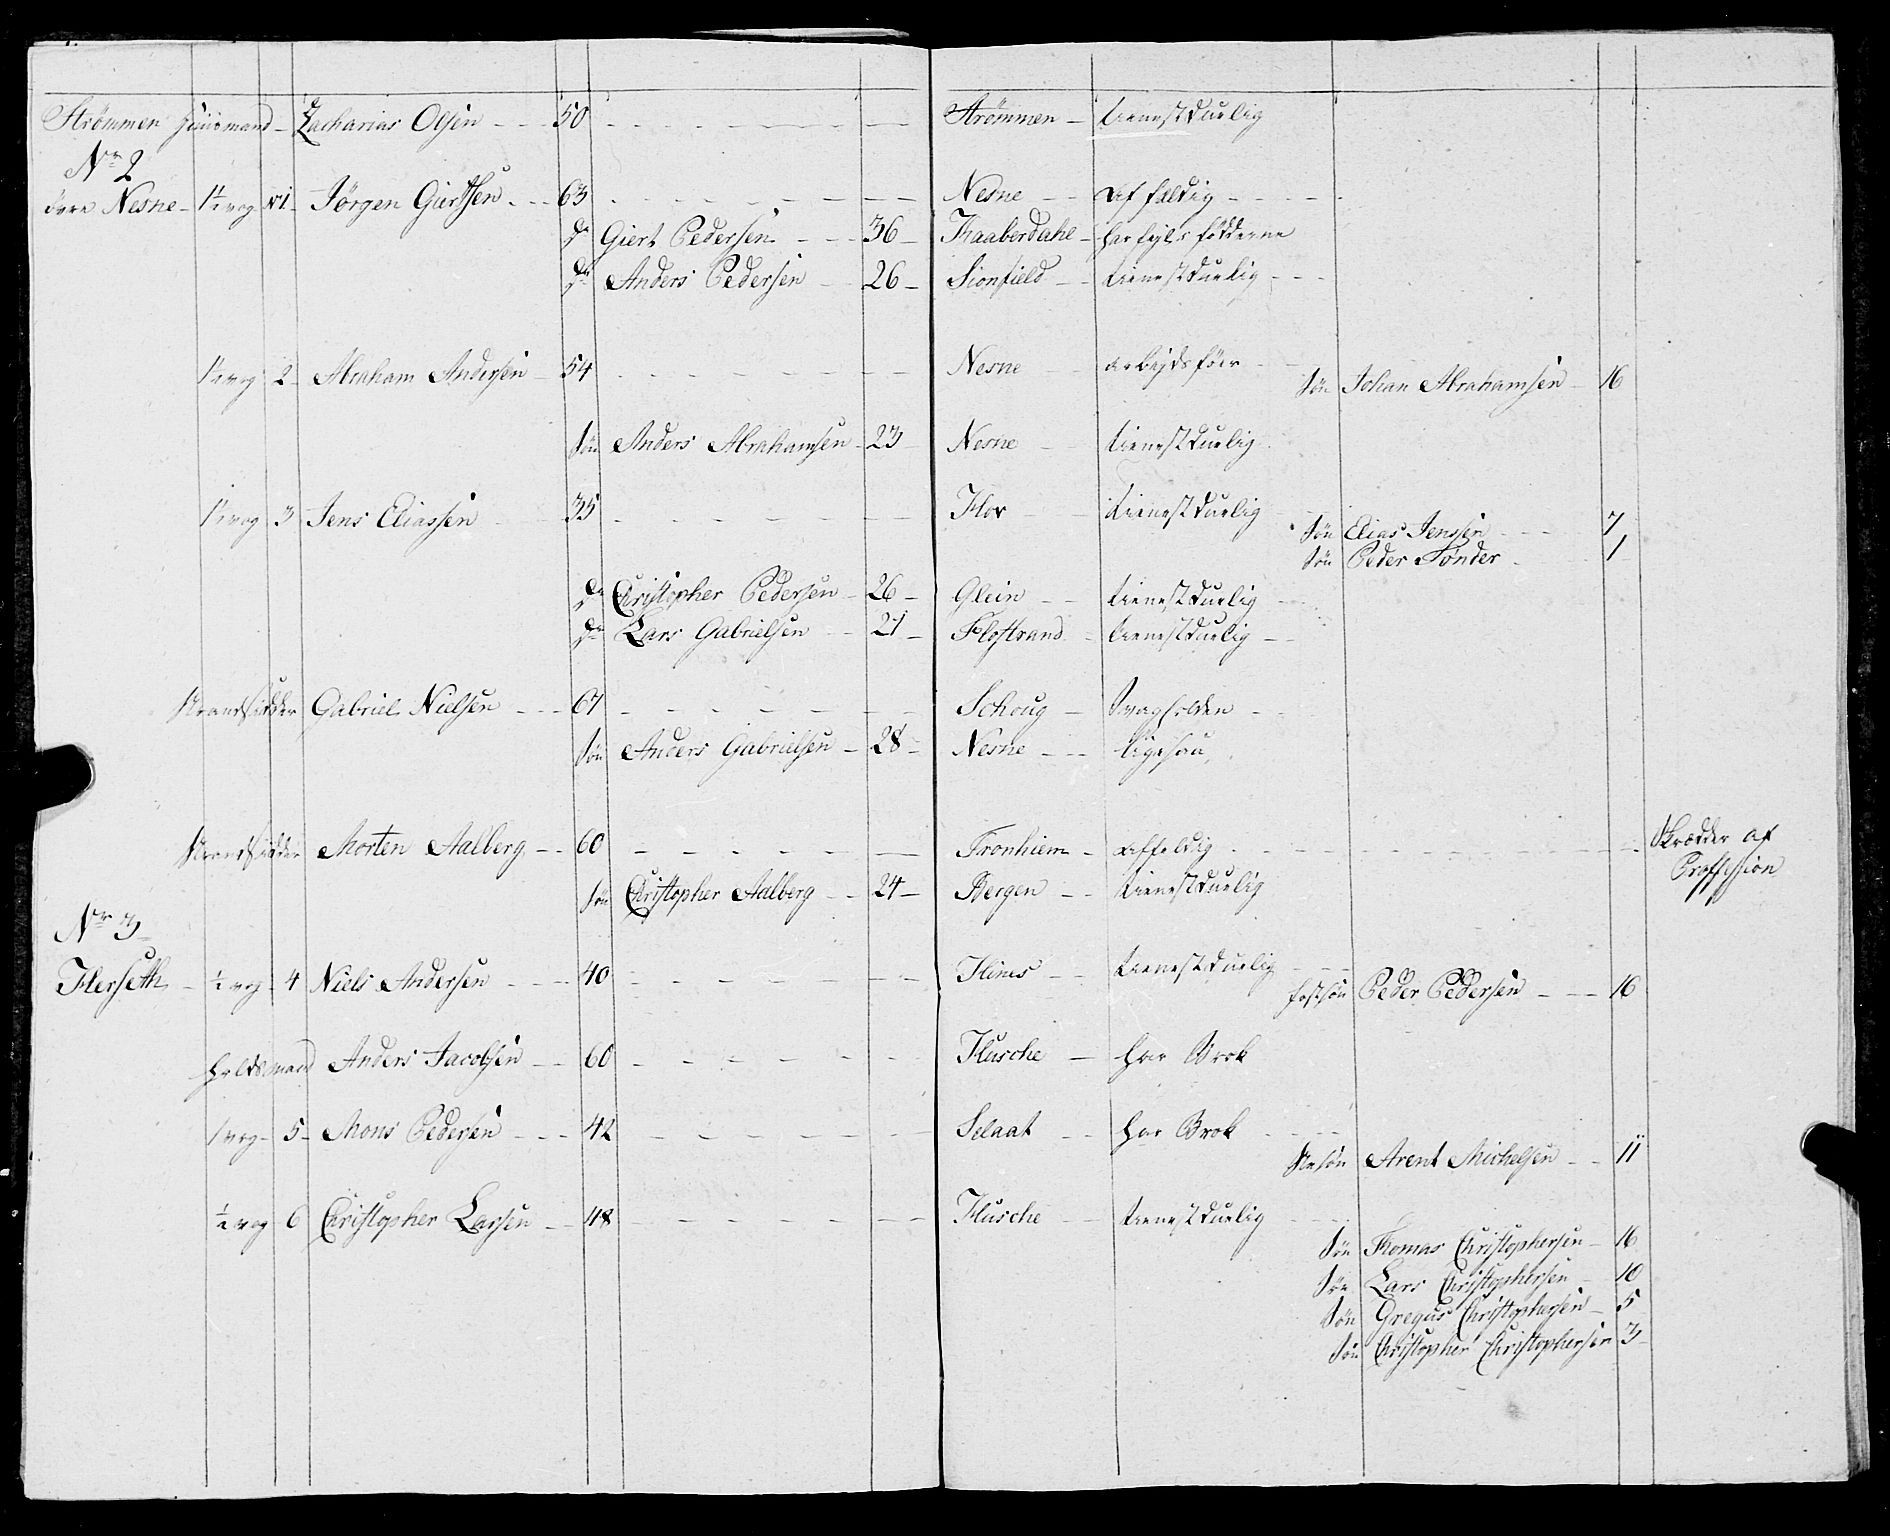 Strømmen Huusmand - Zacharias Olsen - - - 50 - - - Strømmen - tienestduelig
Nr 2
Øvre Nesne - 1½ vog N 1 - Jørgen Giertsen - - 63 - - - Nesne - - affældig - - -
Dr Giert Pedersen - - - 36 - Haaberdahl - har fejl i fødderne
Dr Anders Pedersen - - 26 - Sionfield - - tienestduelig - - -
1½ vog 2 - Abraham Andersen - 54 - - - Nesne - arbejdsføer - -
Søn Johan Abrahamsen - 16
Søn Anders Abrahamsen - 23 - Nesne - tienestduelig
1½ vog 3 Jens Eliassen - - 35 - - - Hov - - tienestduelig
Søn Elias Jensen - - - 7
Søn Peder Tønder - - 1
Dr Christopher Pedersen - 26 - Glein - - tienestduelig - -
Dr Lars Gabrielsen - - 21 - Flostrand - tienestduelig - -
Strandsidder Gabriel Nielsen - - - 67 - - - Schoug - Svagselden - -
Søn Anders Gabrielsen - 28 - Nesne - - ligesaa
Strandsidder Morten Aalberg - - 60 - - - Tronhiem - affeldig - - - Skrædder af
Proffession
Søn Christopher Aalberg - - 24 - Bergen - - tienestduelig
Nr 3
Herseth - ½ vog - 4 Niels Andersen - - - 40 - - - Hines - - tienestduelig - - -
Fostsøn Peder Pedersen - - - 16
Holdsmand Anders Jacobsen - - 60 - - - Husche - har Brok
1 vog - 5 - Mons Pedersen - - - 42 - - - Selaat - - har Brok - - -
Stesøn Arent Michelsen - - 11
½ vog 6 Christopher Larsen - - 48 - - - Husche - - tienestduelig - - -
Søn Thomas Christophersen - 16
Søn Lars Christophersen - 10
Søn Gregus Christophersen - 5
Søn Christopher Christophersen 3 -